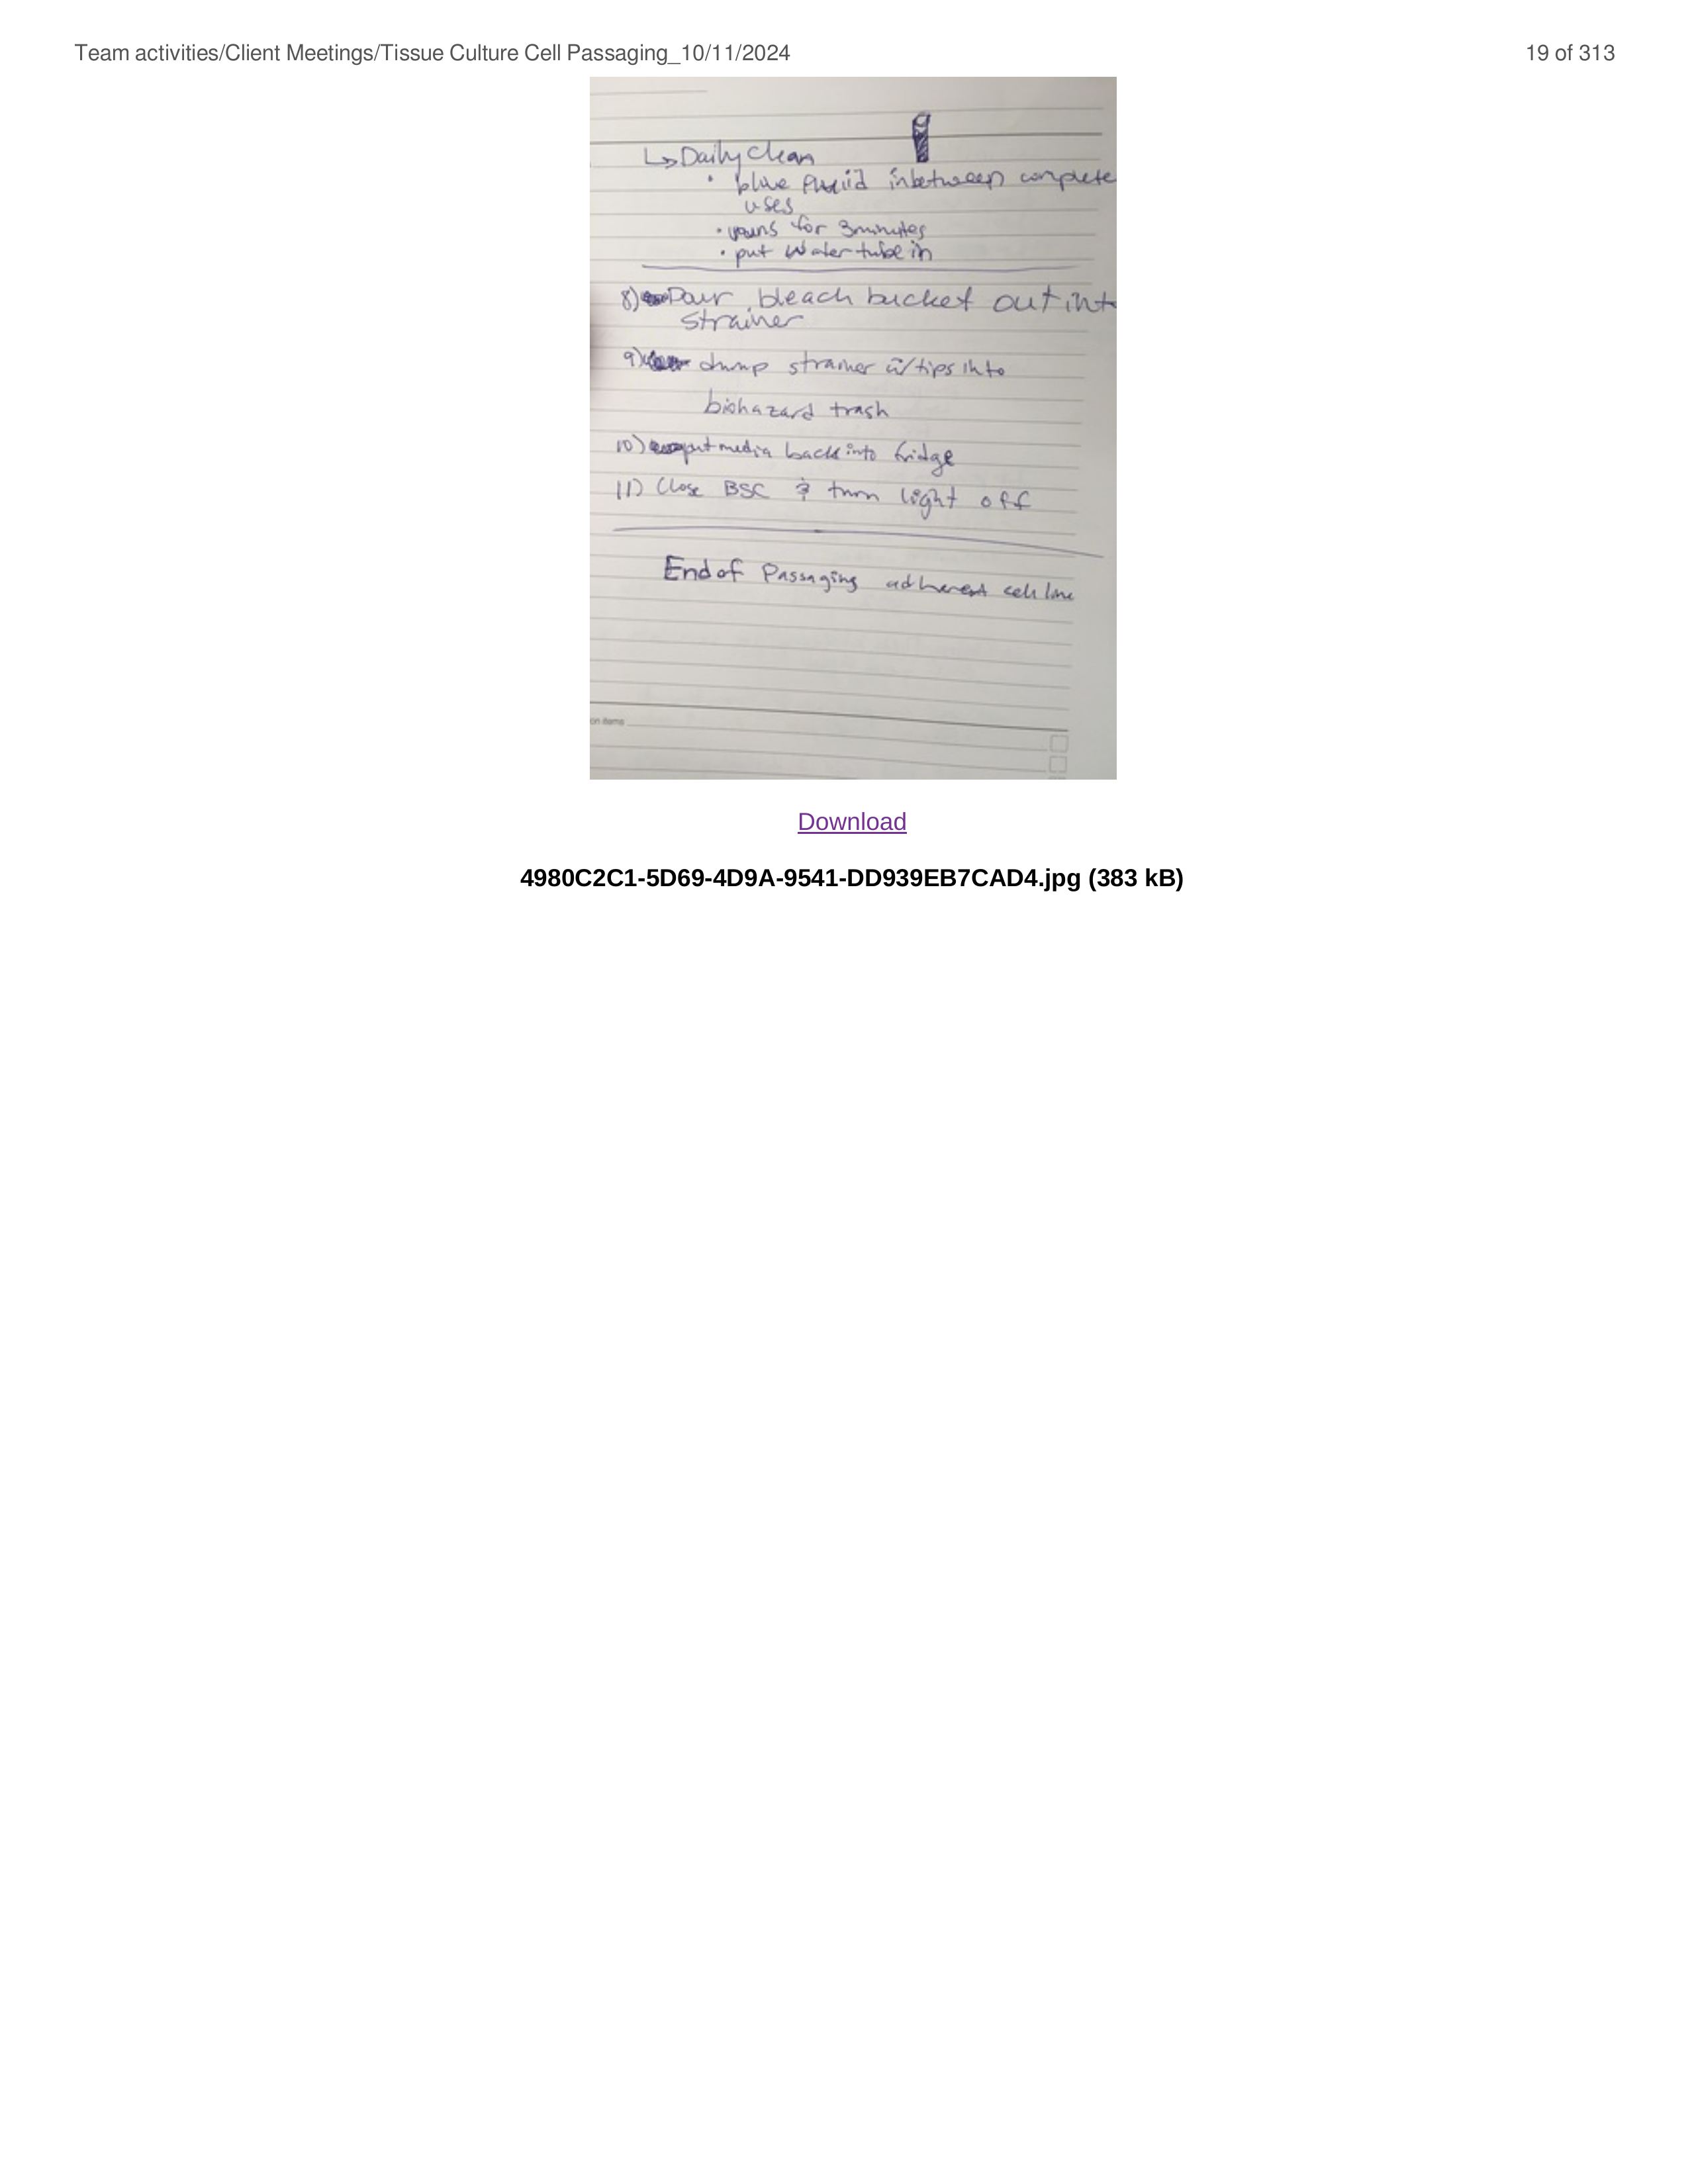 Team activities/Client Meetings/Tissue Culture Cell Passaging_10/11/2024
19 of 313
↳ Daily Clean
• blue fluid inbetween complete
uses
• runs for 3 minutes
• put water tube in
8) Pour bleach bucket out int
strainer
9) dump strainer w/tips into
biohazard trash
10) put media back into fridge
11) Close BSC & turn light off
End of Passaging adherent cell line
on items
Download
4980C2C1-5D69-4D9A-9541-DD939EB7CAD4.jpg (383 kB)